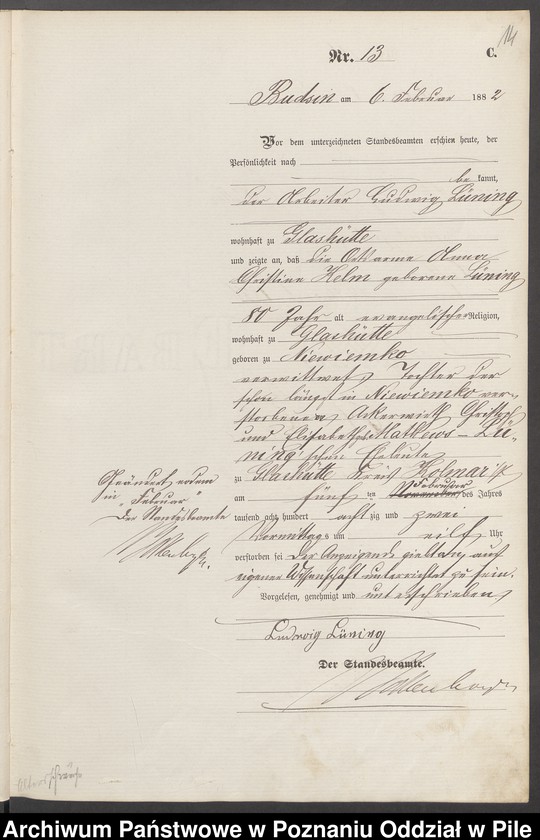 14
Nr. 13
C.
Budsin am 6. Februar 1882
Vor dem unterzeichneten Standesbeamten erschien heute, der
Persönlichkeit nach
be kannt,
der Arbeiter Ludwig Lüning
wohnhaft zu Glashütte
und zeigte an, daß die Ortsarme Anna
Christine Helm geborene Lüning
80 Jahr alt evangelischer Religion,
wohnhaft zu Glashütte
geboren zu Niewiemko
verwittwet, Tochter der
schon längst in Niewiemko ver-
storbenen Ackerwirth
und Elisabeth Mathews - Lü-
ning'schen Eheleute
zu Glashütte Kreis Kolmar i/P
am fünf ten Februar des Jahres
tausend acht hundert acht zig und zwei
Vormittags um eilf Uhr
verstorben sei Der Anzeigende giebt an, aus
eigener Wissenschaft unterrichtet zu sein.
Vorgelesen, genehmigt und unterschrieben
Ludwig Lüning
Der Standesbeamte.
Geändert
in "Februar"
Der Standesbeamte
Archiwum Państwowe w Poznaniu Oddział w Pile